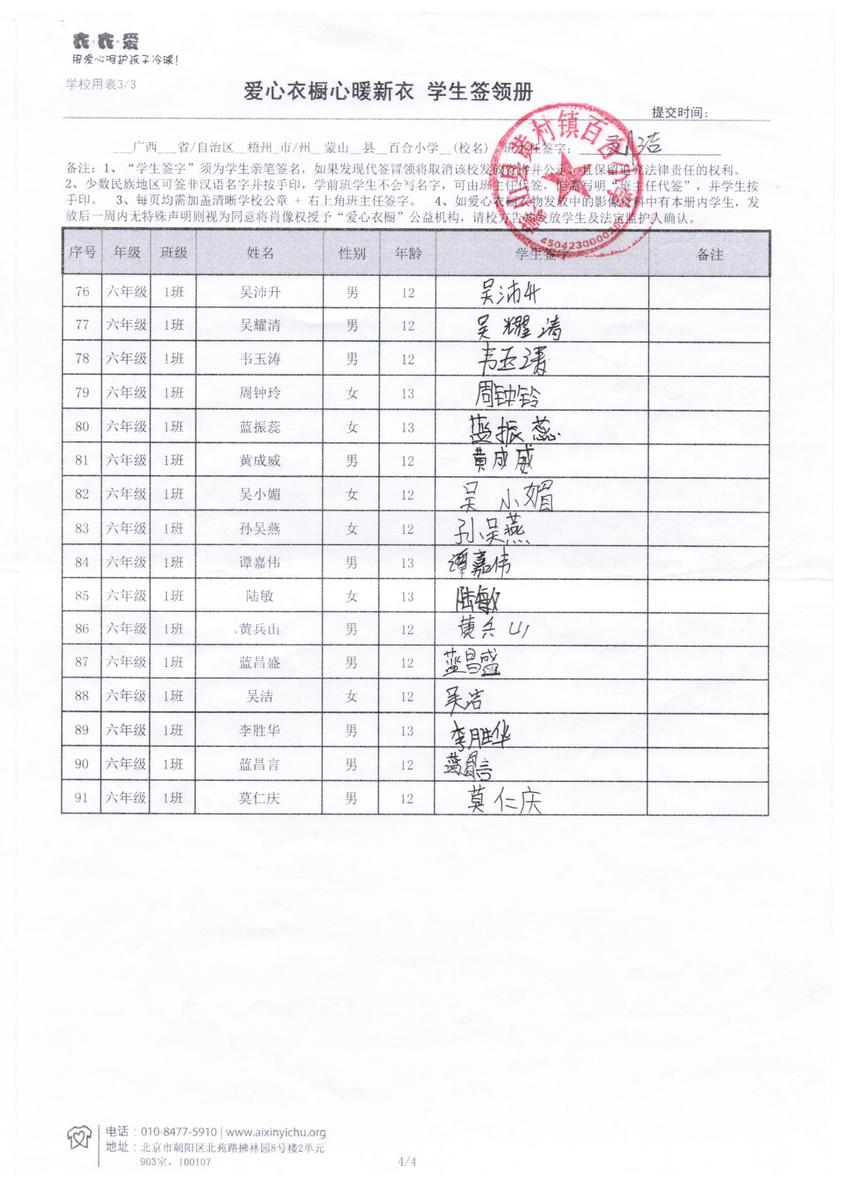 衣·衣·爱
用爱心呵护孩子冷暖!
学校用表3/3
爱心衣橱心暖新衣 学生签领册
提交时间:
广西 省/自治区 梧州 市/州 蒙山 县 百合小学 (校名) 班主任签字: 刘洁
备注:1、“学生签字”须为学生亲笔签名,如果发现代签冒领将取消该校发放资格并公示,且保留追究法律责任的权利。
2、少数民族地区可签非汉语名字并按手印,学前班学生不会写名字,可由班主任代签,但需写明“班主任代签”,并学生按
手印。 3、每页均需加盖清晰学校公章 + 右上角班主任签字。 4、如爱心衣橱衣物发放中的影像资料中有本册内学生,发
放后一周内无特殊声明则视为同意将肖像权授予“爱心衣橱”公益机构,请校方告知发放学生及法定监护人确认。
村镇百
4504230000
序号 年级 班级 姓名 性别 年龄 学生签字 备注
76 六年级 1班 吴沛升 男 12 吴沛升
77 六年级 1班 吴耀清 男 12 吴耀清
78 六年级 1班 韦玉涛 男 12 韦玉涛
79 六年级 1班 周钟玲 女 13 周钟铃
80 六年级 1班 蓝振蕊 女 13 蓝振蕊
81 六年级 1班 黄成威 男 12 黄成威
82 六年级 1班 吴小媚 女 12 吴小媚
83 六年级 1班 孙吴燕 女 12 孙吴燕
84 六年级 1班 谭嘉伟 男 13 谭嘉伟
85 六年级 1班 陆敏 女 13 陆敏
86 六年级 1班 黄兵山 男 12 黄兵山
87 六年级 1班 蓝昌盛 男 12 蓝昌盛
88 六年级 1班 吴洁 女 12 吴洁
89 六年级 1班 李胜华 男 13 李胜华
90 六年级 1班 蓝昌言 男 12 蓝昌言
91 六年级 1班 莫仁庆 男 12 莫仁庆
电话:010-8477-5910 | www.aixinyichu.org
地址:北京市朝阳区北苑路拂林园8号楼2单元
903室,100107
4/4